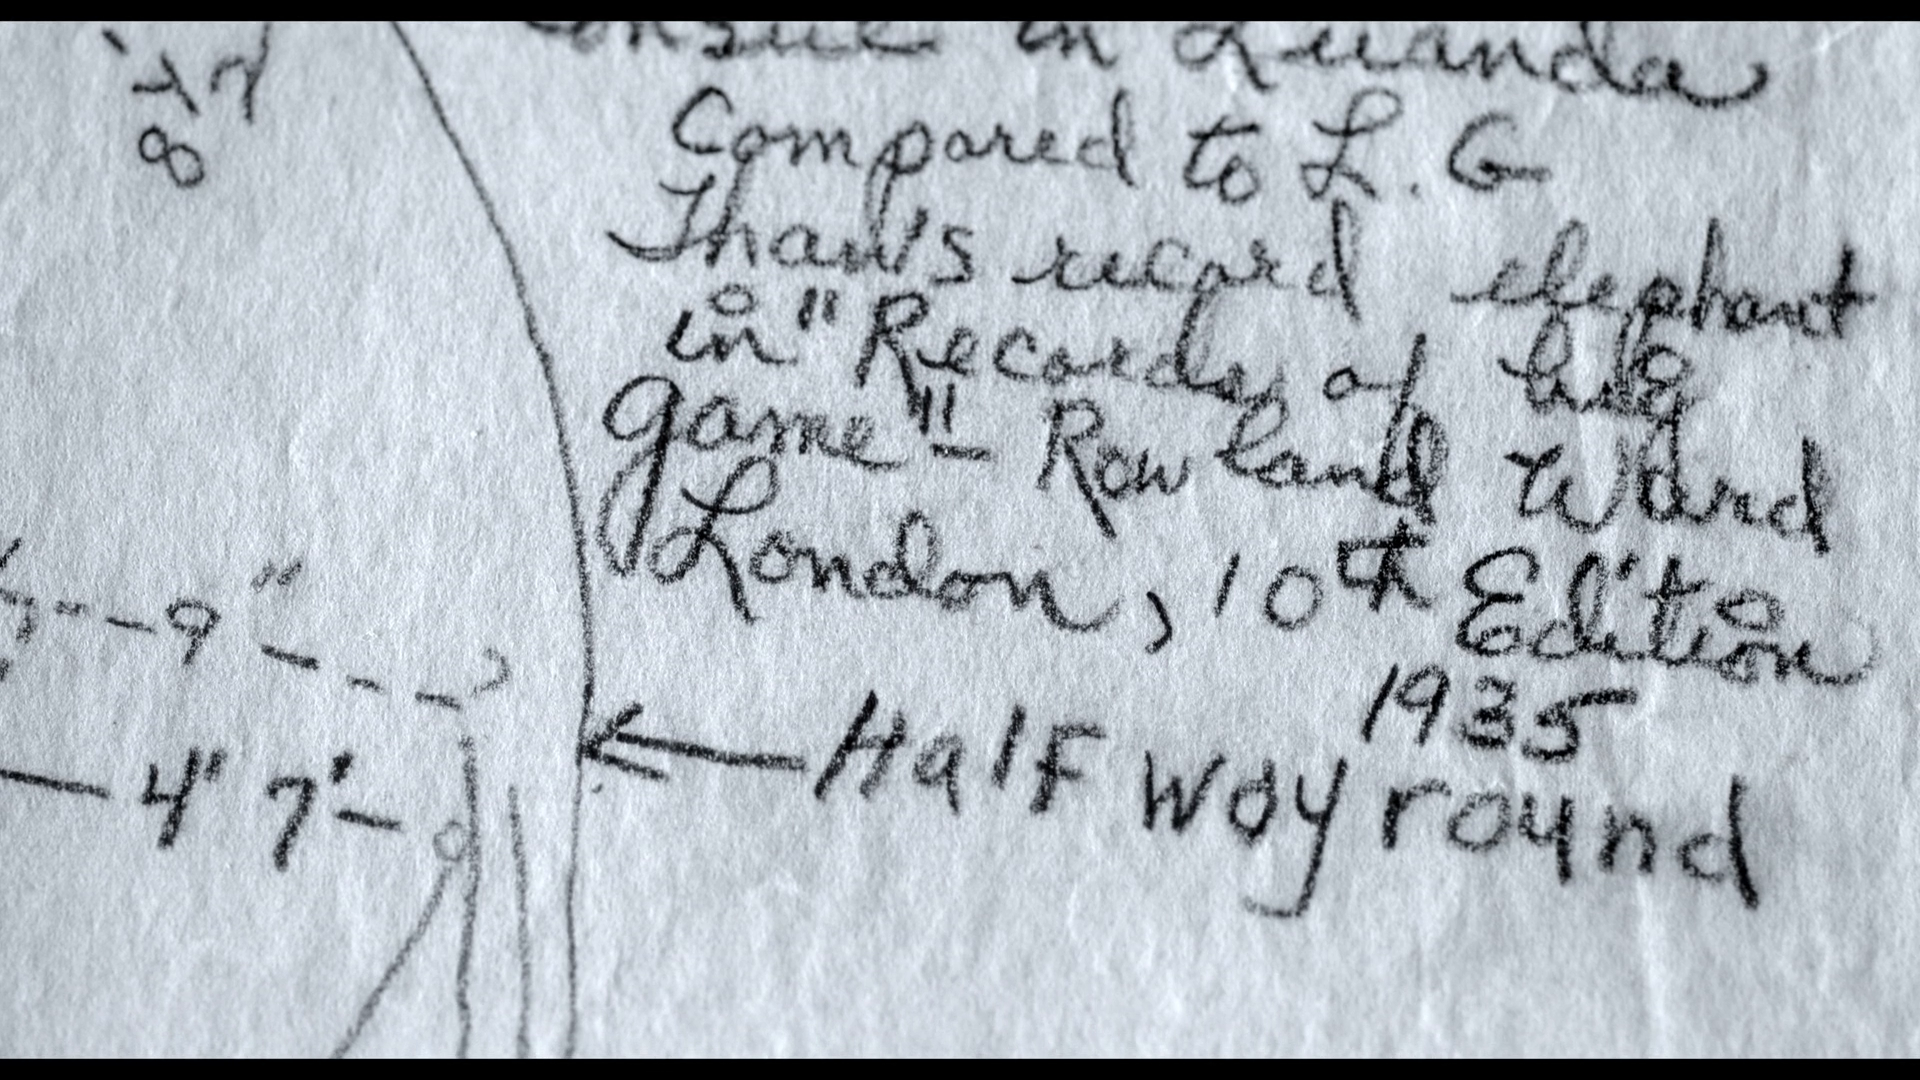 in Luanda
Compared to L. G
Thaw's record elephant
in "Records of big
game" - Rowland Ward
London, 10th Edition
1935
Half way round
9"
4' 7'